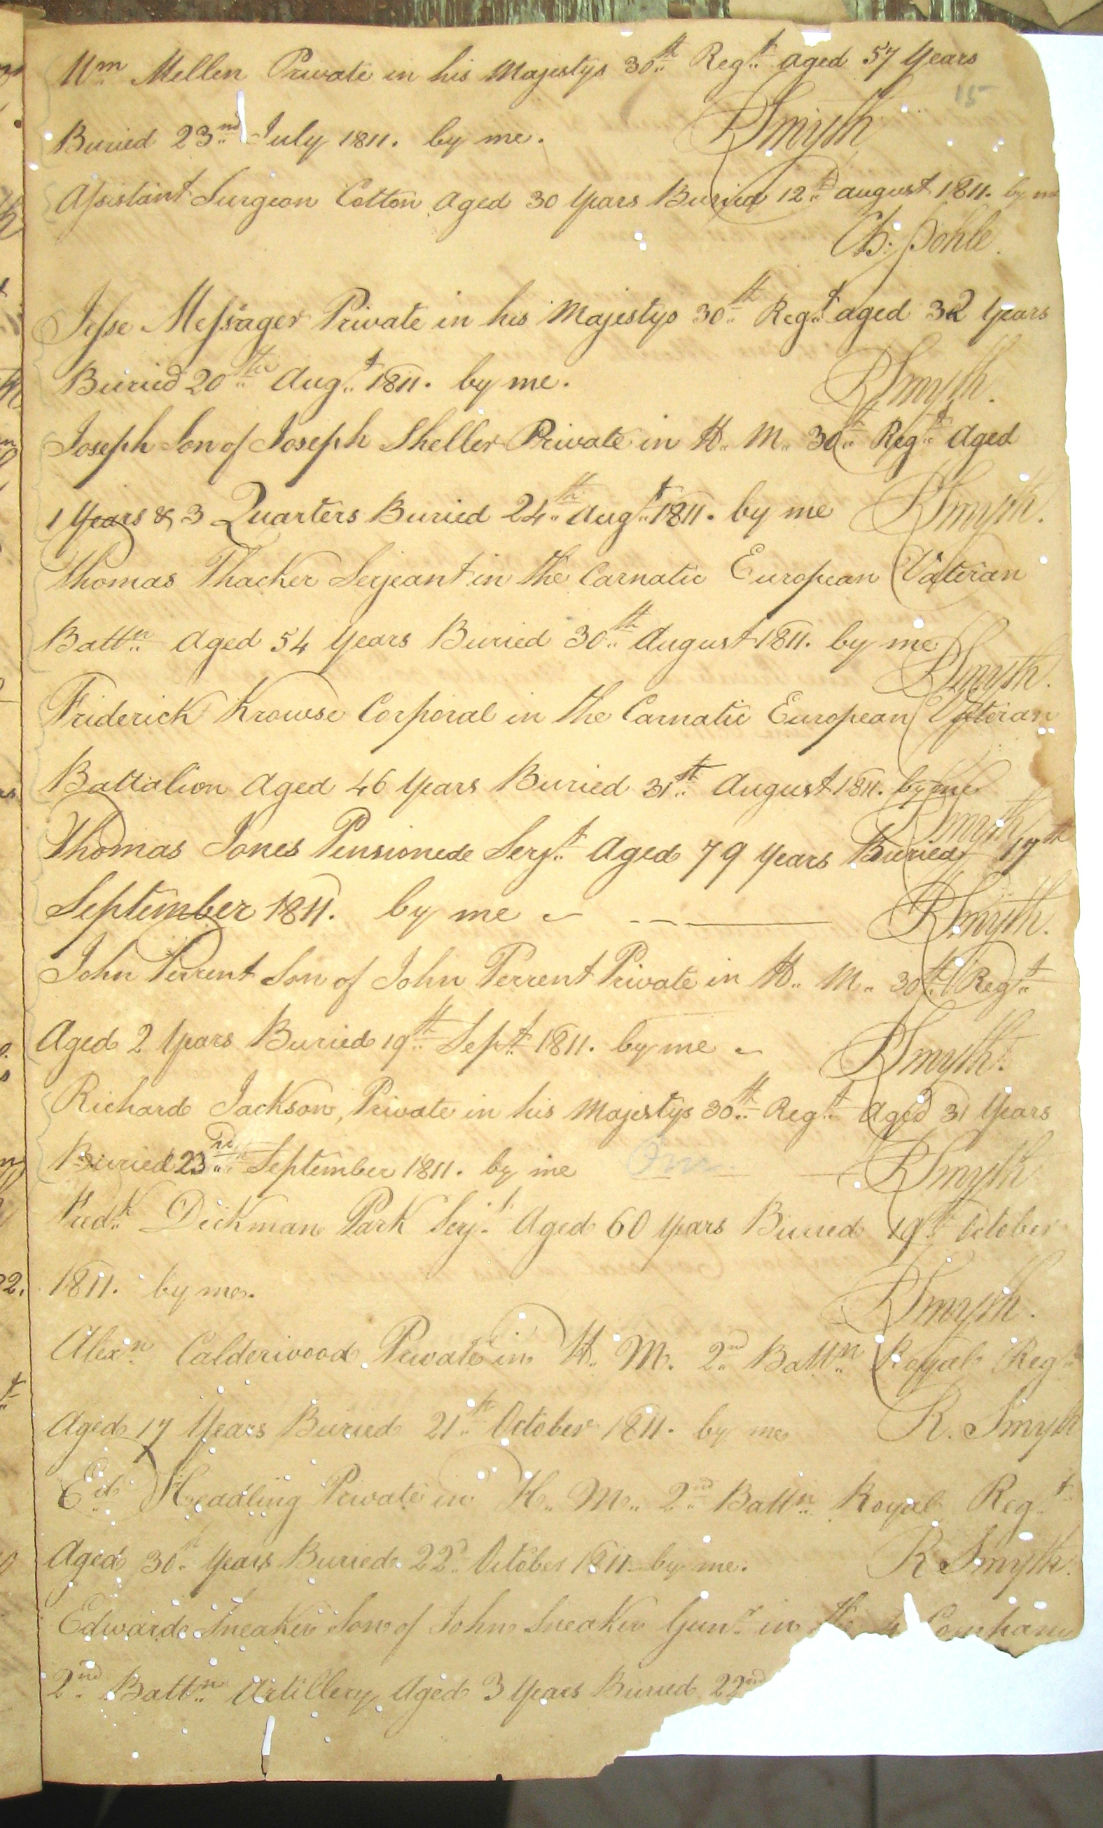 Wm Mellen Private in his Majestys 30th Regt aged 57 Years
15
Buried 23nd July 1811. by me. RSmyth
Assistant Surgeon Cotton aged 30 Years Buried 12th august 1811. by me
Ch: Pohle.
Jesse Messager Private in his Majestys 30th Regt aged 32 Years
Buried 20th Augt 1811. by me. RSmyth.
Joseph Son of Joseph Sheller Private in H. M. 30th Regt aged
1 Years & 3 Quarters Buried 24th Augt 1811. by me RSmyth.
Thomas Thacker Serjeant in the Carnatic European Vateran
Battn aged 54 Years Buried 30th August 1811. by me
RSmyth.
Friderick Krowse Corporal in the Carnatic European Vateran
Battalion aged 46 Years Buried 31st August 1811. by me
RSmyth
Thomas Jones Pensionede Serjt aged 79 Years Buried 17th
September 1811. by me RSmyth.
John Perrent Son of John Perrent Private in H. M. 30th Regt
Aged 2 Years Buried 19th Sept 1811. by me RSmyth.
Richard Jackson Private in his Majestys 30th Regt Aged 31 Years
Buried 23rd September 1811. by me RSmyth
Fredk Dickman Park Serjt Aged 60 Years Buried 19th October
1811. by me. RSmyth.
Alexn Calderwood Private in H. M. 2nd Battn Royal Regt
Aged 17 Years Buried 21st October 1811. by me R. Smyth
Ed Headling Private in H. M. 2nd Battn Royal Regt
Aged 30th Years Buried 22d October 1811 by me. R Smyth.
Edward Sneaker Son of John Sneaker Gunr in the 4 Company
2nd Battn Artillery Aged 3 Years Buried 22nd